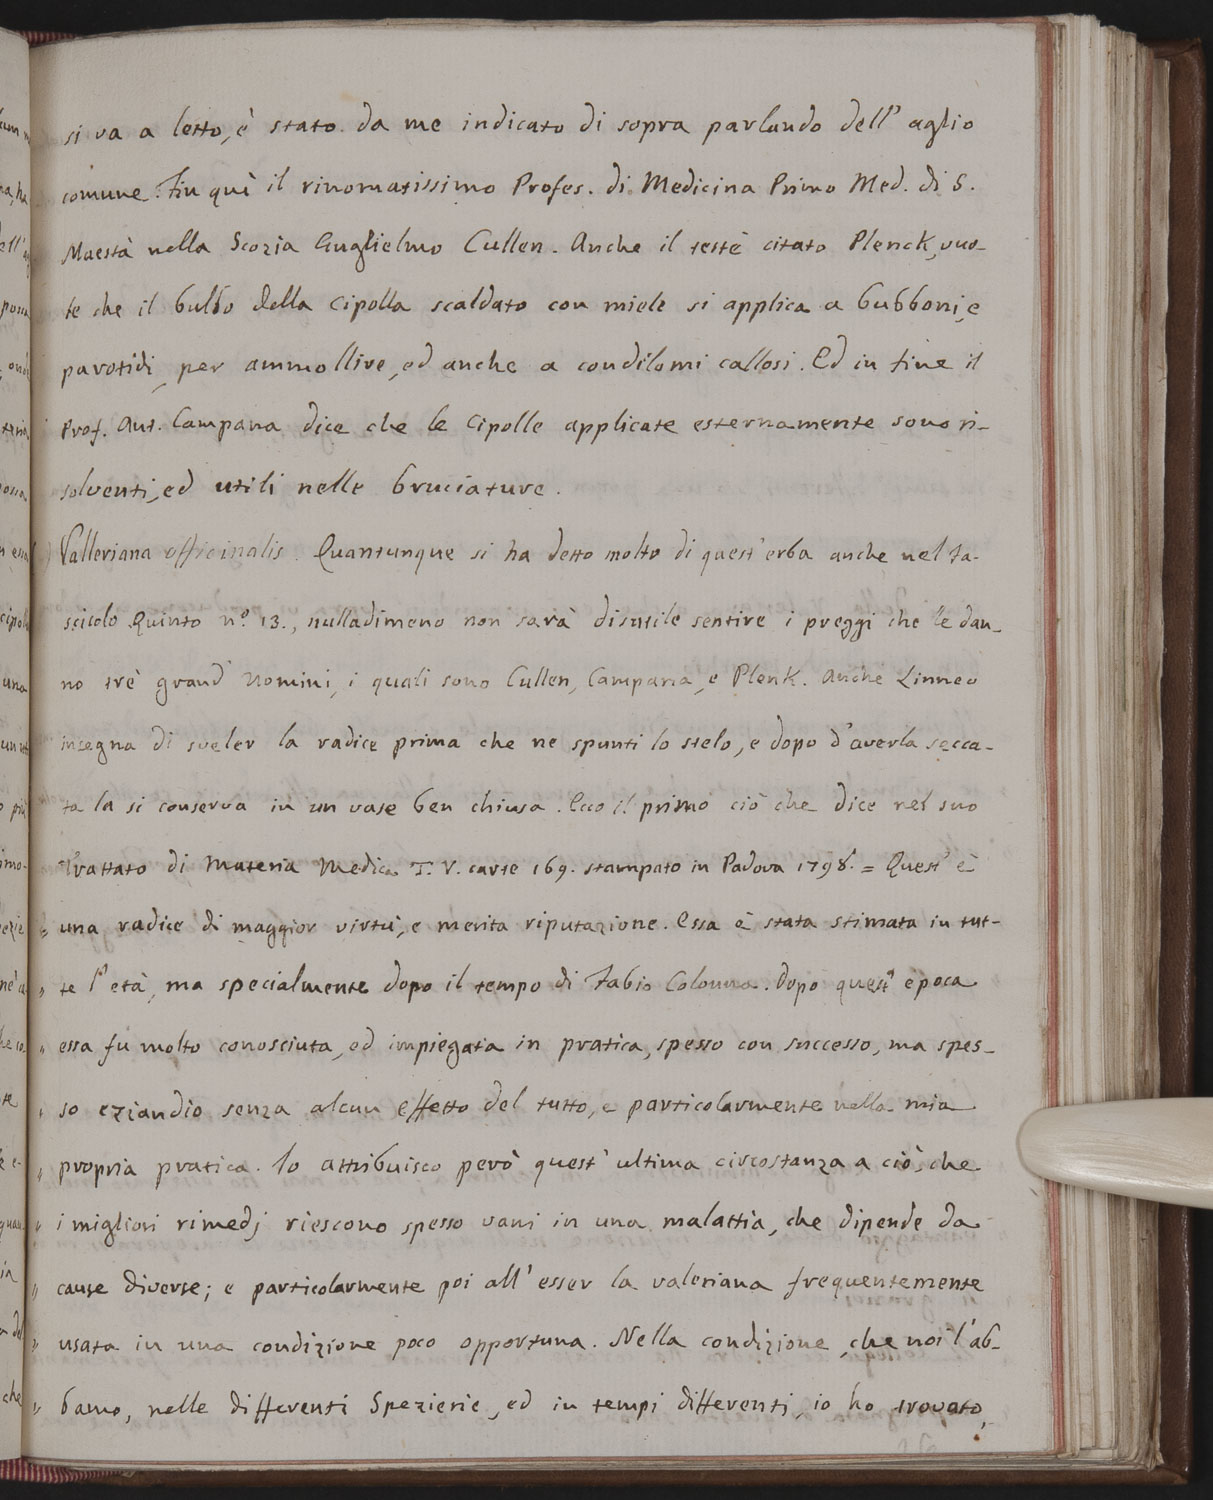 si va a letto, è stato da me indicato di sopra parlando dell' aglio
comune. Fin quì il rinomatissimo Profes. di Medicina Primo Med. di S.
Maestà nella Scozia Guglielmo Cullen. Anche il testè citato Plenck, vuo-
le che il bulbo della cipolla scaldato con miele si applica a bubboni, e
parotidi, per ammollire, ed anche a condilomi callosi. Ed in fine il
Prof. Ant. Campana dice che le Cipolle applicate esternamente sono ri-
solventi, ed utili nelle bruciature.
Valleriana officinalis. Quantunque si ha detto molto di quest' erba anche nel fa-
scicolo Quinto n.º 13., nulladimeno non sarà disutile sentire i preggi che le dan-
no trè grand' Uomini, i quali sono Cullen, Campana, e Plenk. Anche Linneo
insegna di sveler la radice prima che ne spunti lo stelo, e dopo d'averla secca-
ta la si conserva in un vase ben chiusa. Ecco il primo ciò che dice nel suo
Trattato di Materia Medica T. V. carte 169. stampato in Padova 1798. = Quest' è
„ una radice di maggior virtù, e merita riputazione. Essa è stata stimata in tut-
„ te l'età, ma specialmente dopo il tempo di Fabio Colonna. Dopo quest' epoca
„ essa fu molto conosciuta, ed impiegata in pratica, spesso con successo, ma spes-
„ so eziandio senza alcun effetto del tutto, e particolarmente nella mia
„ propria pratica. Io attribuisco però quest' ultima circostanza a ciò, che
„ i migliori rimedj riescono spesso vani in una malattia, che dipende da
„ cause diverse; e particolarmente poi all' esser la valeriana frequentemente
„ usata in una condizione poco opportuna. Nella condizione, che noi l'ab-
„ bamo, nelle differenti Spezierie, ed in tempi differenti, io ho trovato,